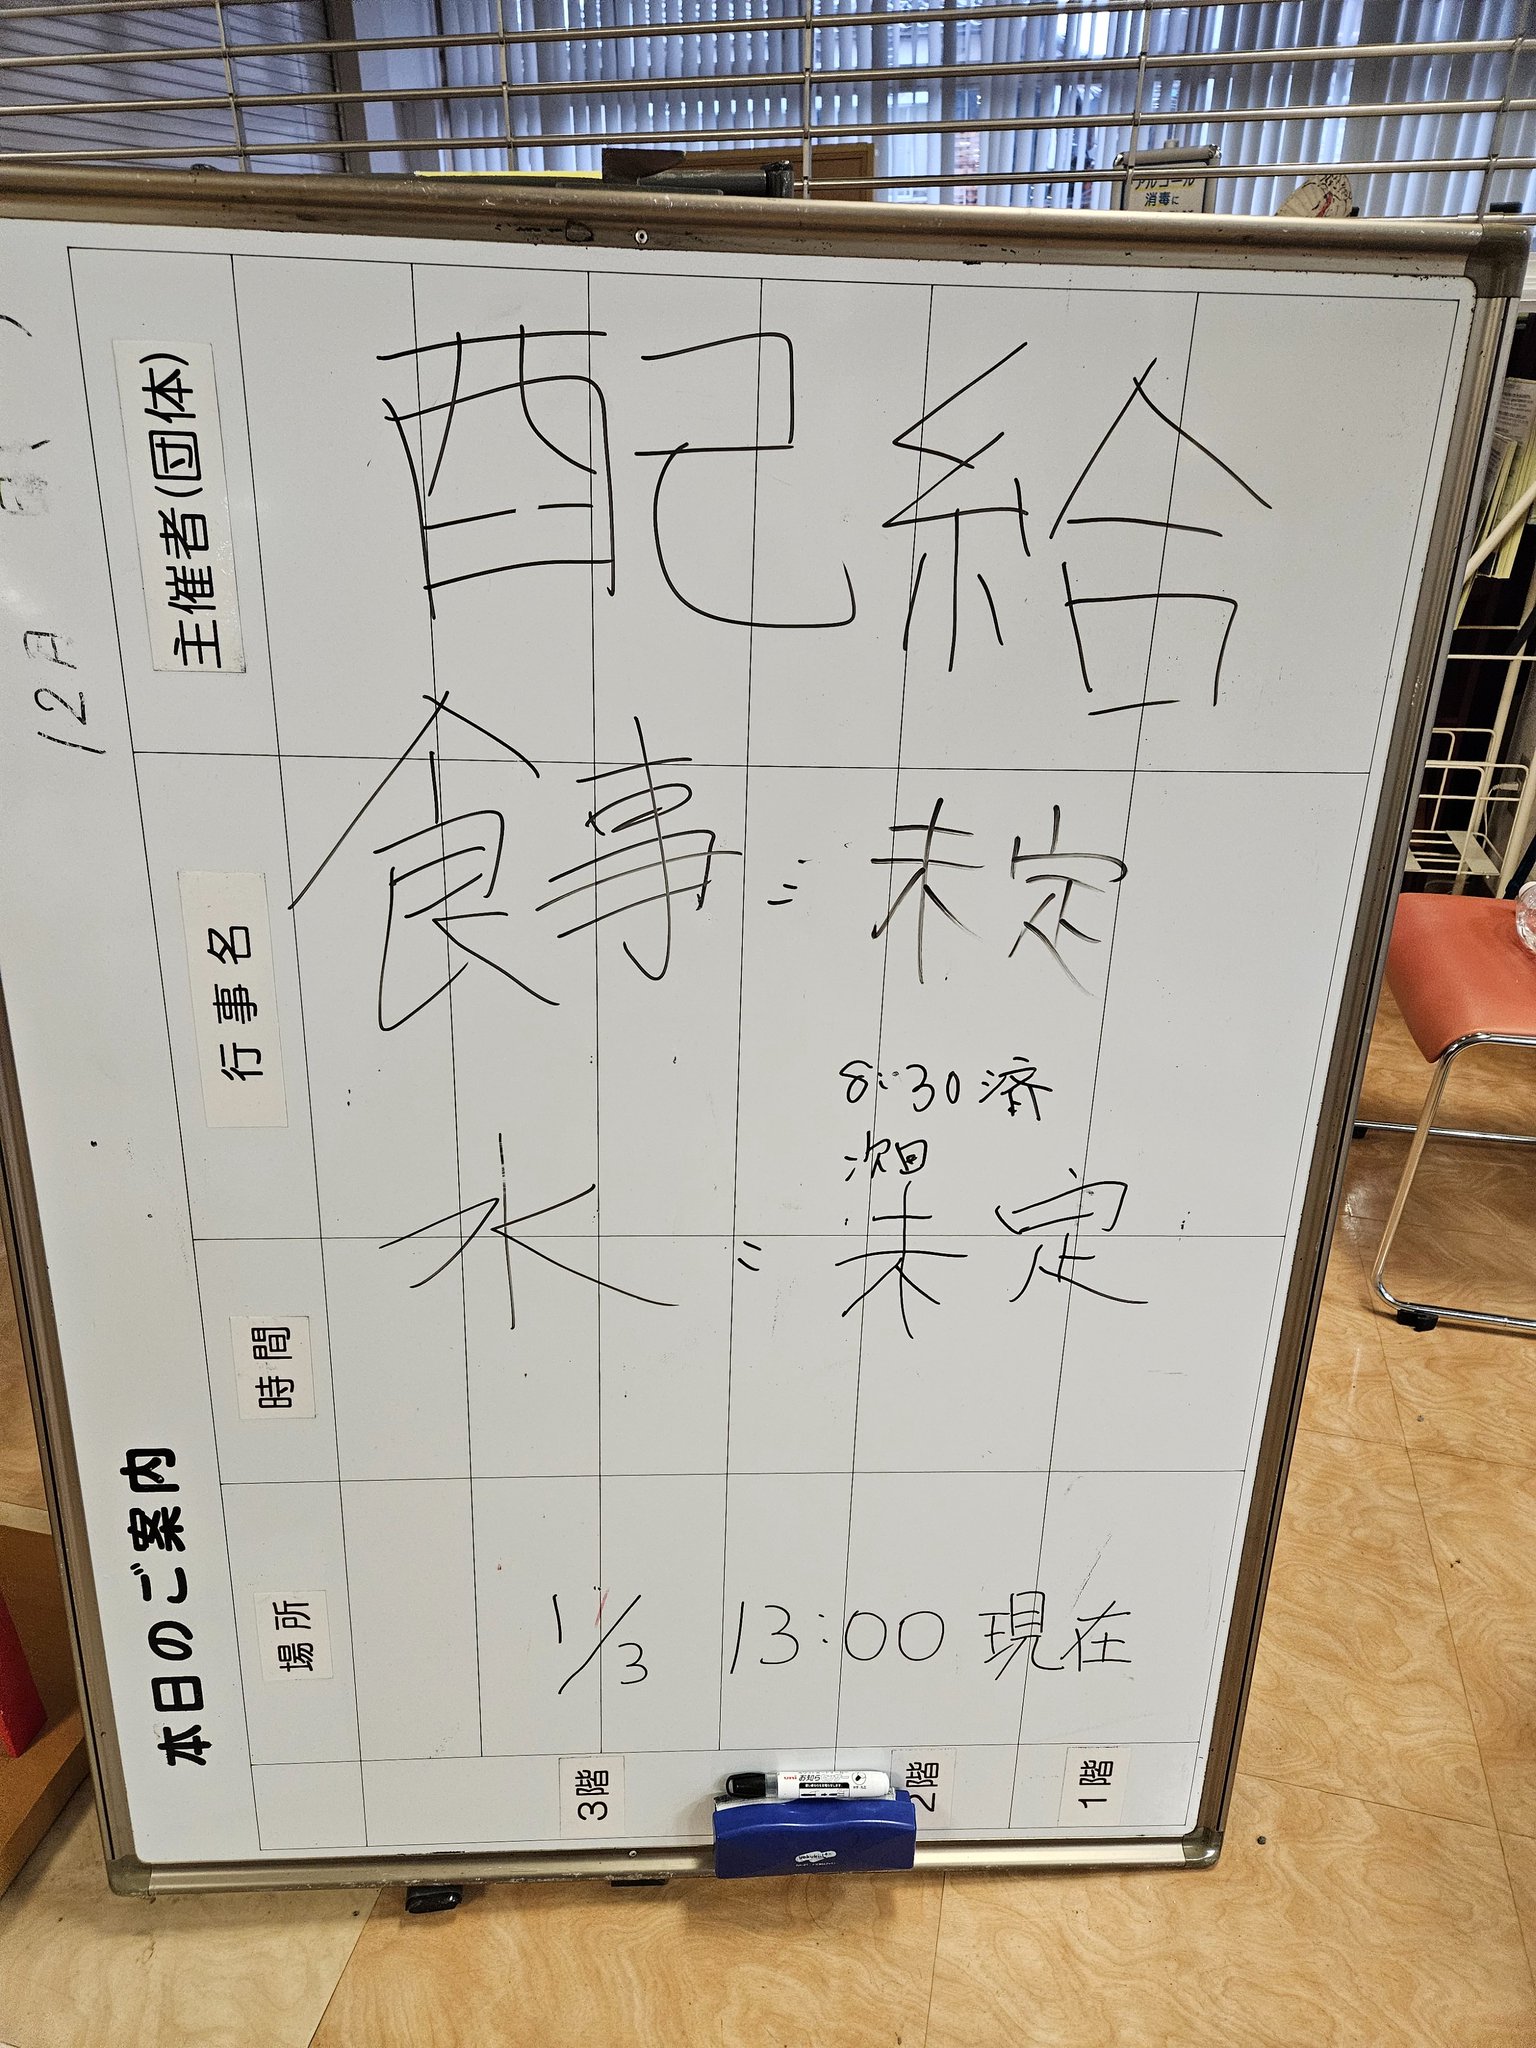 アルコール
消毒に
12月
本日のご案内
主催者(団体)
行事名
時間
場所
配給
食事 = 未定
8:30済
次回
水 = 未定
1/3 13:00 現在
3階
2階
1階
uni お知ら